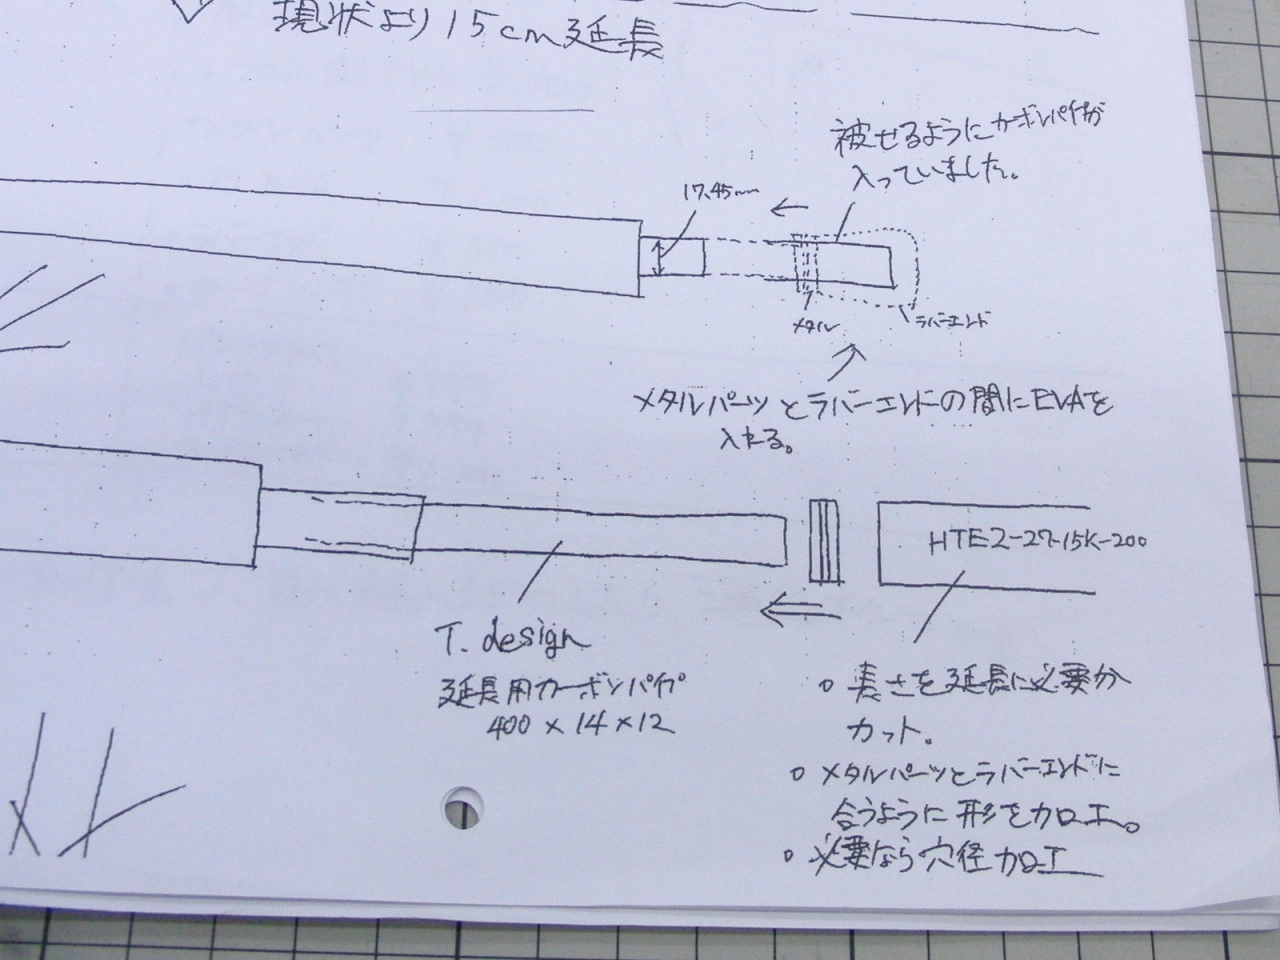 現状より15cm延長
被せるようにカーボンパイプが
入っていました。
17.45mm
メタル
ラバーエンド
メタルパーツとラバーエンドの間にEVAを
入れる。
HTE2-27-15K-200
T. design
延長用カーボンパイプ
400×14×12
○ 長さを延長に必要分
カット。
○ メタルパーツとラバーエンドに
合うように形を加工。
○ 必要なら穴径加工